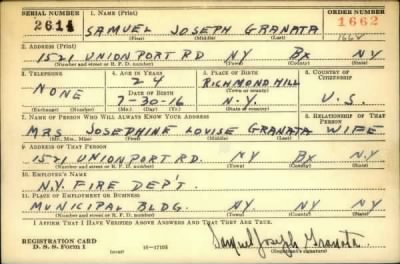 SERIAL NUMBER 1. NAME (Print) ORDER NUMBER
2614 SAMUEL JOSEPH GRANATA 1662
(First) (Middle) (Last)
2. ADDRESS (Print)
1521 UNIONPORT RD NY BX NY
(Number and street or R. F. D. number) (Town) (County) (State)
3. TELEPHONE 4. AGE IN YEARS 5. PLACE OF BIRTH 6. COUNTRY OF CITIZENSHIP
NONE 24 RICHMOND HILL
DATE OF BIRTH (Town or county)
7-30-16 N.Y. U.S.
(Exchange) (Number) (Mo.) (Day) (Yr.) (State or country)
7. NAME OF PERSON WHO WILL ALWAYS KNOW YOUR ADDRESS 8. RELATIONSHIP OF THAT PERSON
MRS JOSEPHINE LOUISE GRANATA WIFE
(Mr., Mrs., Miss) (First) (Middle) (Last)
9. ADDRESS OF THAT PERSON
1521 UNIONPORT RD. NY BX NY
(Number and street or R. F. D. number) (Town) (County) (State)
10. EMPLOYER'S NAME
N.Y. FIRE DEP'T.
11. PLACE OF EMPLOYMENT OR BUSINESS
MUNICIPAL BLDG. NY NY NY
(Number and street or R. F. D. number) (Town) (County) (State)
I AFFIRM THAT I HAVE VERIFIED ABOVE ANSWERS AND THAT THEY ARE TRUE.
REGISTRATION CARD
D. S. S. Form 1 (over) 16-17105 Samuel Joseph Granata
(Registrant's signature)